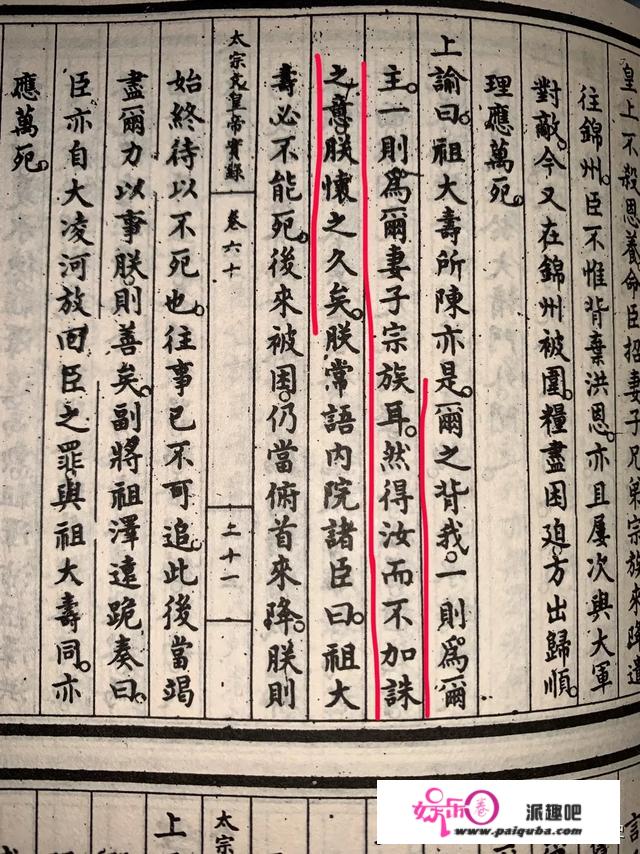 皇上不殺恩養命臣招妻子兄弟宗族來降遣
往錦州。臣不惟背棄洪恩。亦且屢次與大軍
對敵。今又在錦州被圍。糧盡困迫。方出歸順。
理應萬死。
上諭曰。祖大壽所陳亦是。爾之背我。一則爲爾
主。一則爲爾妻子宗族耳。然得汝而不加誅
之意。朕懷之久矣。朕常語內院諸臣曰。祖大
壽必不能死。後來被困。仍當俯首來降。朕則
太宗文皇帝實錄 卷六十 二十一
始終待以不死也。往事已不可追。此後當竭
盡爾力以事朕。則善矣。副將祖澤遠跪奏曰。
臣亦自大凌河放回。臣之罪。與祖大壽同。亦
應萬死。
上
太宗
娱乐圈 派趣吧
www.paiquba.com